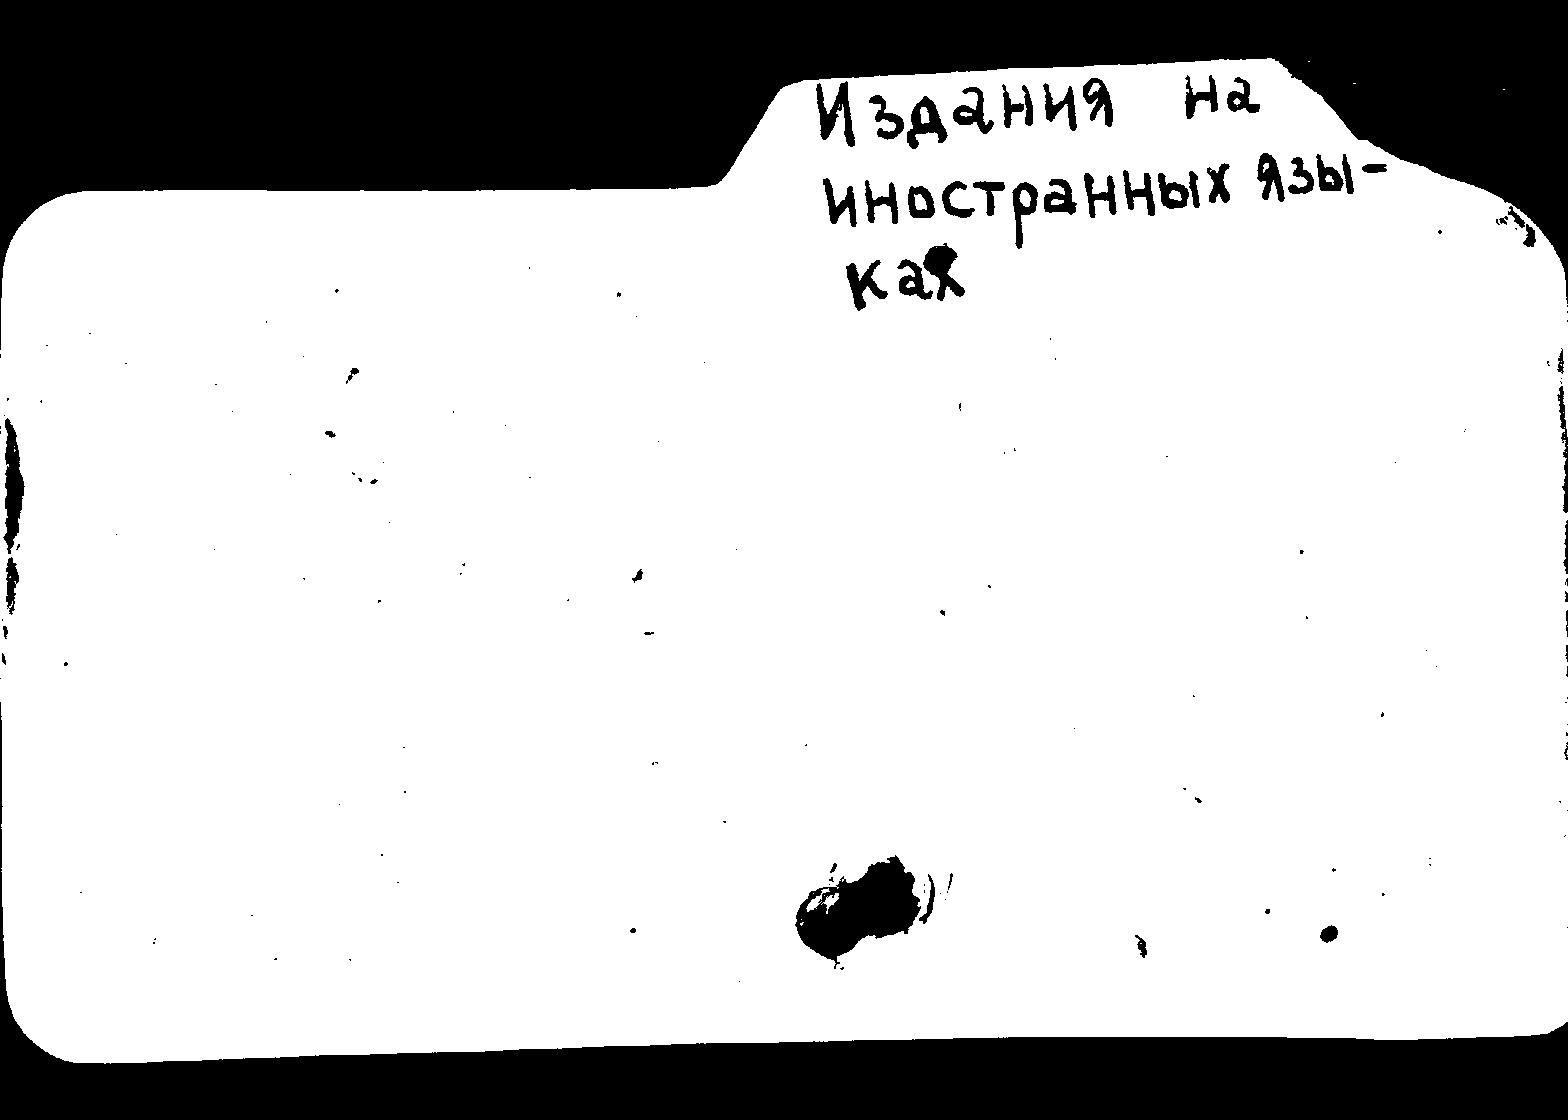 Издания на
иностранных язы-
ках